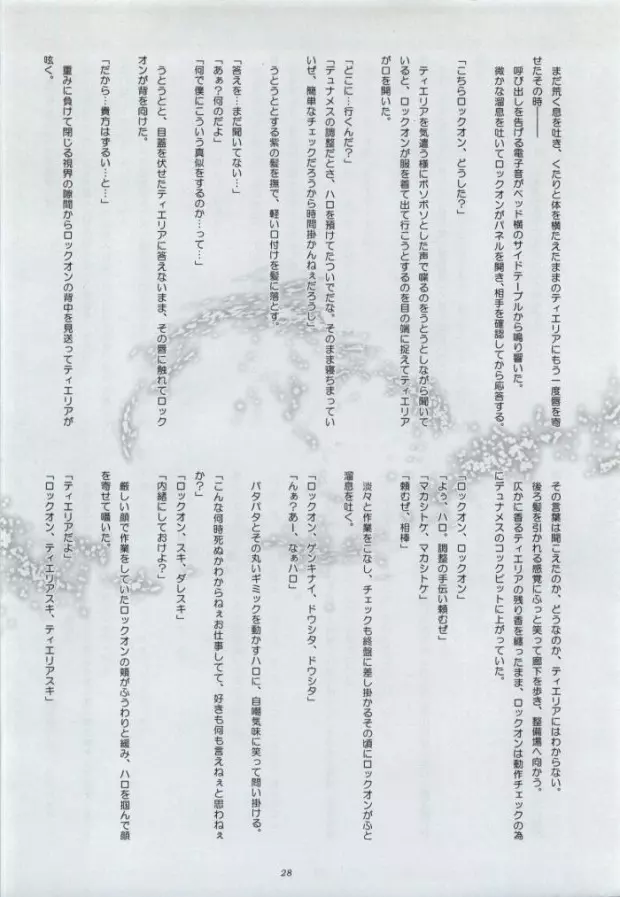 まだ荒く息を吐き、くたりと体を横たえたままのティエリアにもう一度唇を寄
せたその時――
呼び出しを告げる電子音がベッド横のサイドテーブルから鳴り響いた。
微かな溜息を吐いてロックオンがパネルを開き、相手を確認してから応答する。
「こちらロックオン、どうした？」
ティエリアを気遣う様にボソボソとした声で喋るのをうとうとしながら聞いて
いると、ロックオンが服を着て出て行こうとするのを目の端に捉えてティエリア
が口を開いた。
「どこに…行くんだ？」
「デュナメスの調整だとさ、ハロを預けてたついでだな。そのまま寝ちまってい
いぜ、簡単なチェックだろうから時間掛かんねぇだろうし」
うとうととする紫の髪を撫で、軽い口付けを髪に落とす。
「答えを…まだ聞いてない…」
「あぁ？何のだよ」
「何で僕にこういう真似をするのか…って…」
うとうとと、目蓋を伏せたティエリアに答えないまま、その唇に触れてロック
オンが背を向けた。
「だから…貴方はずるい…と…」
重みに負けて閉じる視界の隙間からロックオンの背中を見送ってティエリアが
呟く。
その言葉は聞こえたのか、どうなのか、ティエリアにはわからない。
後ろ髪を引かれる感覚にふっと笑って廊下を歩き、整備場へ向かう。
仄かに香るティエリアの残り香を纏ったまま、ロックオンは動作チェックの為
にデュナメスのコックピットに上がっていた。
「ロックオン、ロックオン」
「よぅ、ハロ。調整の手伝い頼むぜ」
「マカシトケ、マカシトケ」
「頼むぜ、相棒」
淡々と作業をこなし、チェックも終盤に差し掛かるその頃にロックオンがふと
溜息を吐く。
「ロックオン、ゲンキナイ、ドウシタ、ドウシタ」
「んぁ？あー、なぁハロ」
パタパタとその丸いギミックを動かすハロに、自嘲気味に笑って問い掛ける。
「こんな何時死ぬかわからねぇお仕事してて、好きも何も言えねぇと思わねぇ
か？」
「ロックオン、スキ、ダレスキ」
「内緒にしておけよ？」
厳しい顔で作業をしていたロックオンの頬がふうわりと緩み、ハロを掴んで顔
を寄せて囁いた。
「ティエリアだよ」
「ロックオン、ティエリアスキ、ティエリアスキ」
28